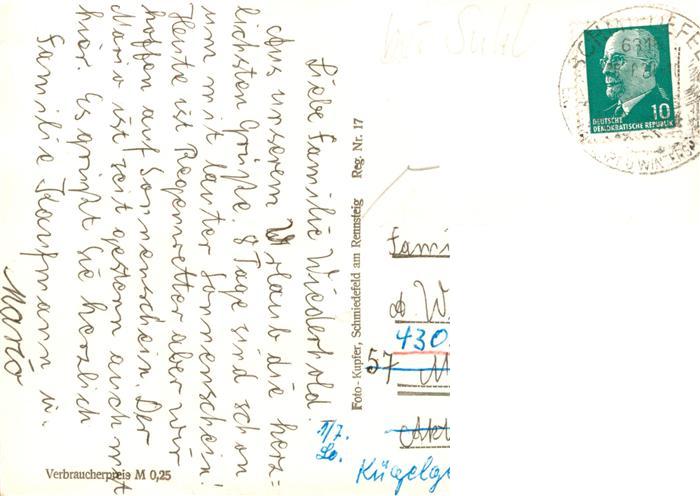 Liebe Familie Wiederhold.
Aus unserem Urlaub die herz=
lichsten Grüße. 8 Tage sind schon
um mit lauter Sonnenschein!
Heute ist Regenwetter aber wir
hoffen auf Sonnenschein. Der
Mario ist seit gestern auch mit
hier. Es grüßt Sie herzlich
Familie Kaufmann u.
Mario
Verbraucherpreis M 0,25
Foto-Kupfer, Schmiedefeld am Rennsteig Reg. Nr. 17
bei Suhl
10
DEUTSCHE
DEMOKRATISCHE REPUBLIK
Fami
A. W.
430
57 M
Akt
Kügelg
11/7.